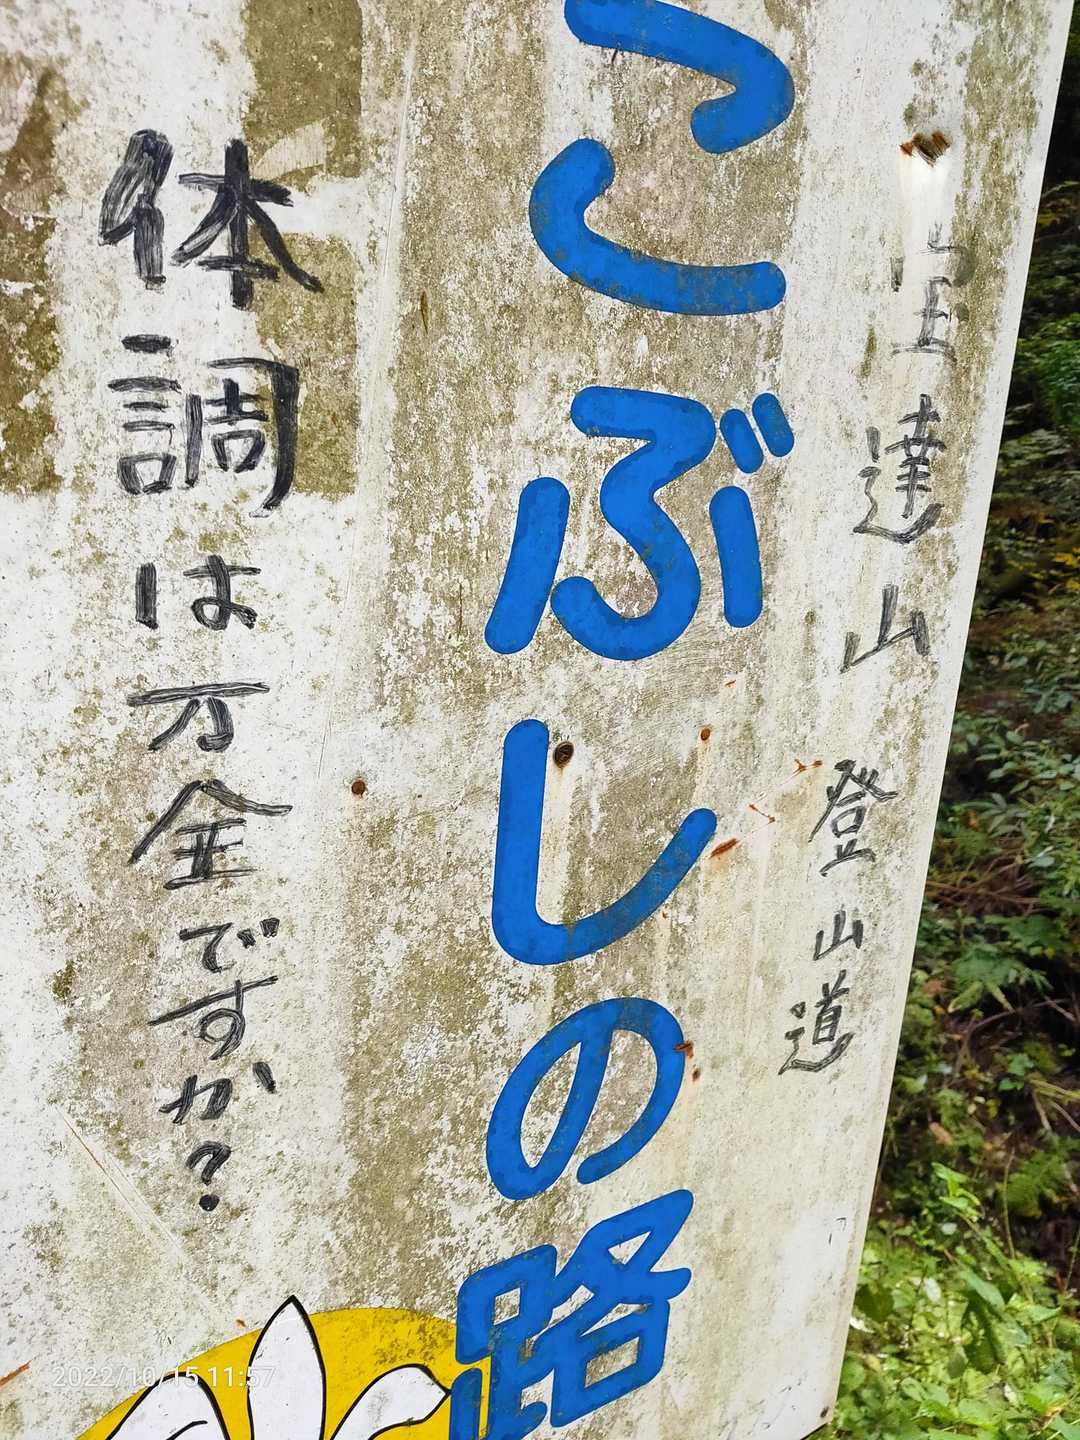 宝達山 登山道
こぶしの路
体調は万全ですか?
2022/10/15 11:57